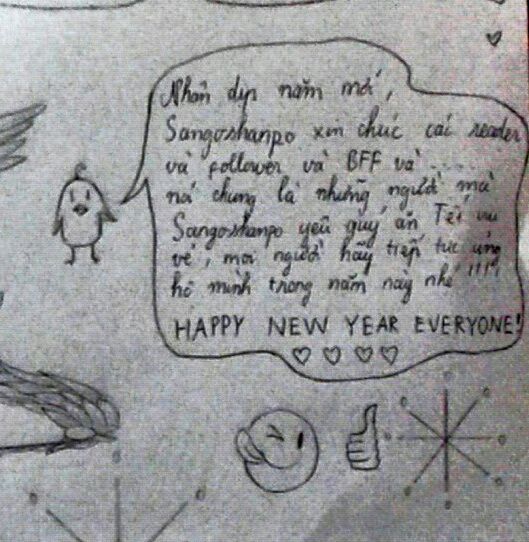 Nhân dịp năm mới,
Sangoshanpo xin chúc các reader
và follower và BFF và .....
nói chung là những người mà
Sangoshanpo yêu quý ăn Tết vui
vẻ, mọi người hãy tiếp tục ủng
hộ mình trong năm này nhé !!!!
HAPPY NEW YEAR EVERYONE!